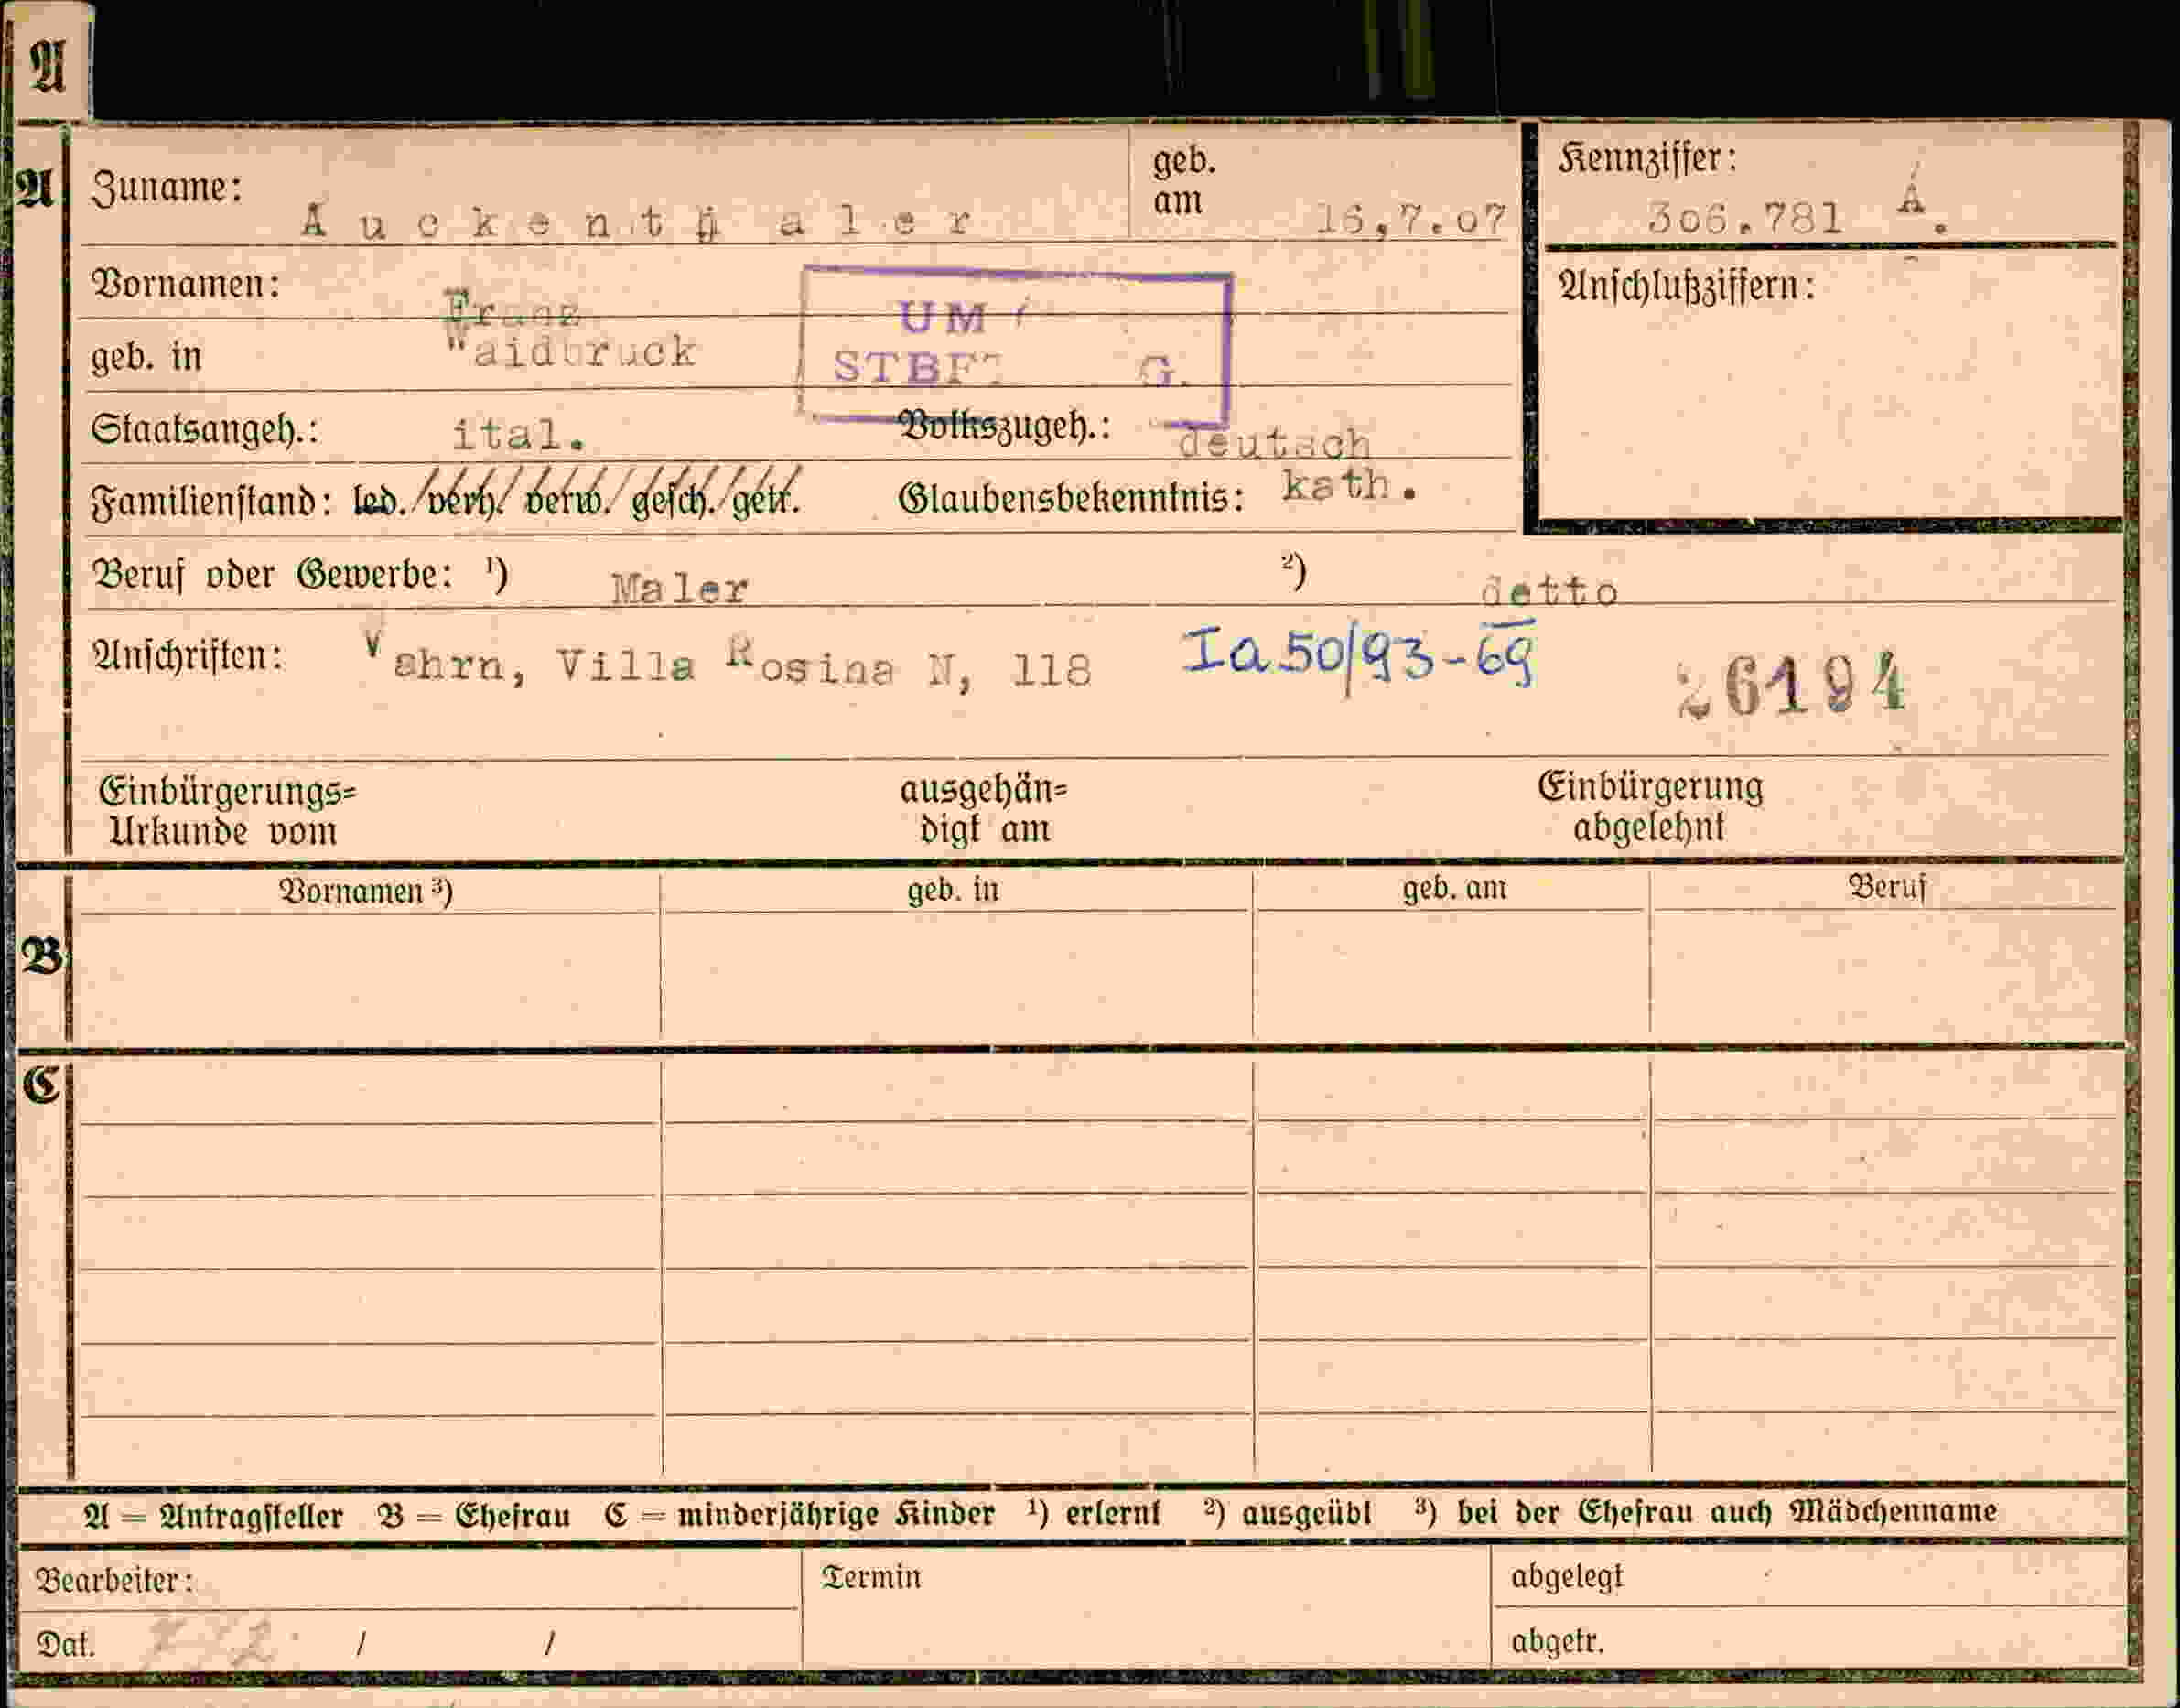 A
A Zuname: Auckenthaler geb. am 16,7.07 Kennziffer: 306.781 A.
Vornamen: Franz Anschlußziffern:
geb. in Waidbruck
UM
G.
Staatsangeh.: ital. Volkszugeh.: deutsch
Familienstand: led./verh./verw./gesch./getr. Glaubensbekenntnis: kath.
Beruf oder Gewerbe: ¹) Maler ²) detto
Anschriften: Vahrn, Villa Rosina N, 118 Ia 50/93-69 26194
Einbürgerungs= ausgehän= Einbürgerung
Urkunde vom digt am abgelehnt
Vornamen ³) geb. in geb. am Beruf
B
C
A = Antragsteller B = Ehefrau C = minderjährige Kinder ¹) erlernt ²) ausgeübt ³) bei der Ehefrau auch Mädchenname
Bearbeiter: Termin abgelegt
Dat. / / abgetr.